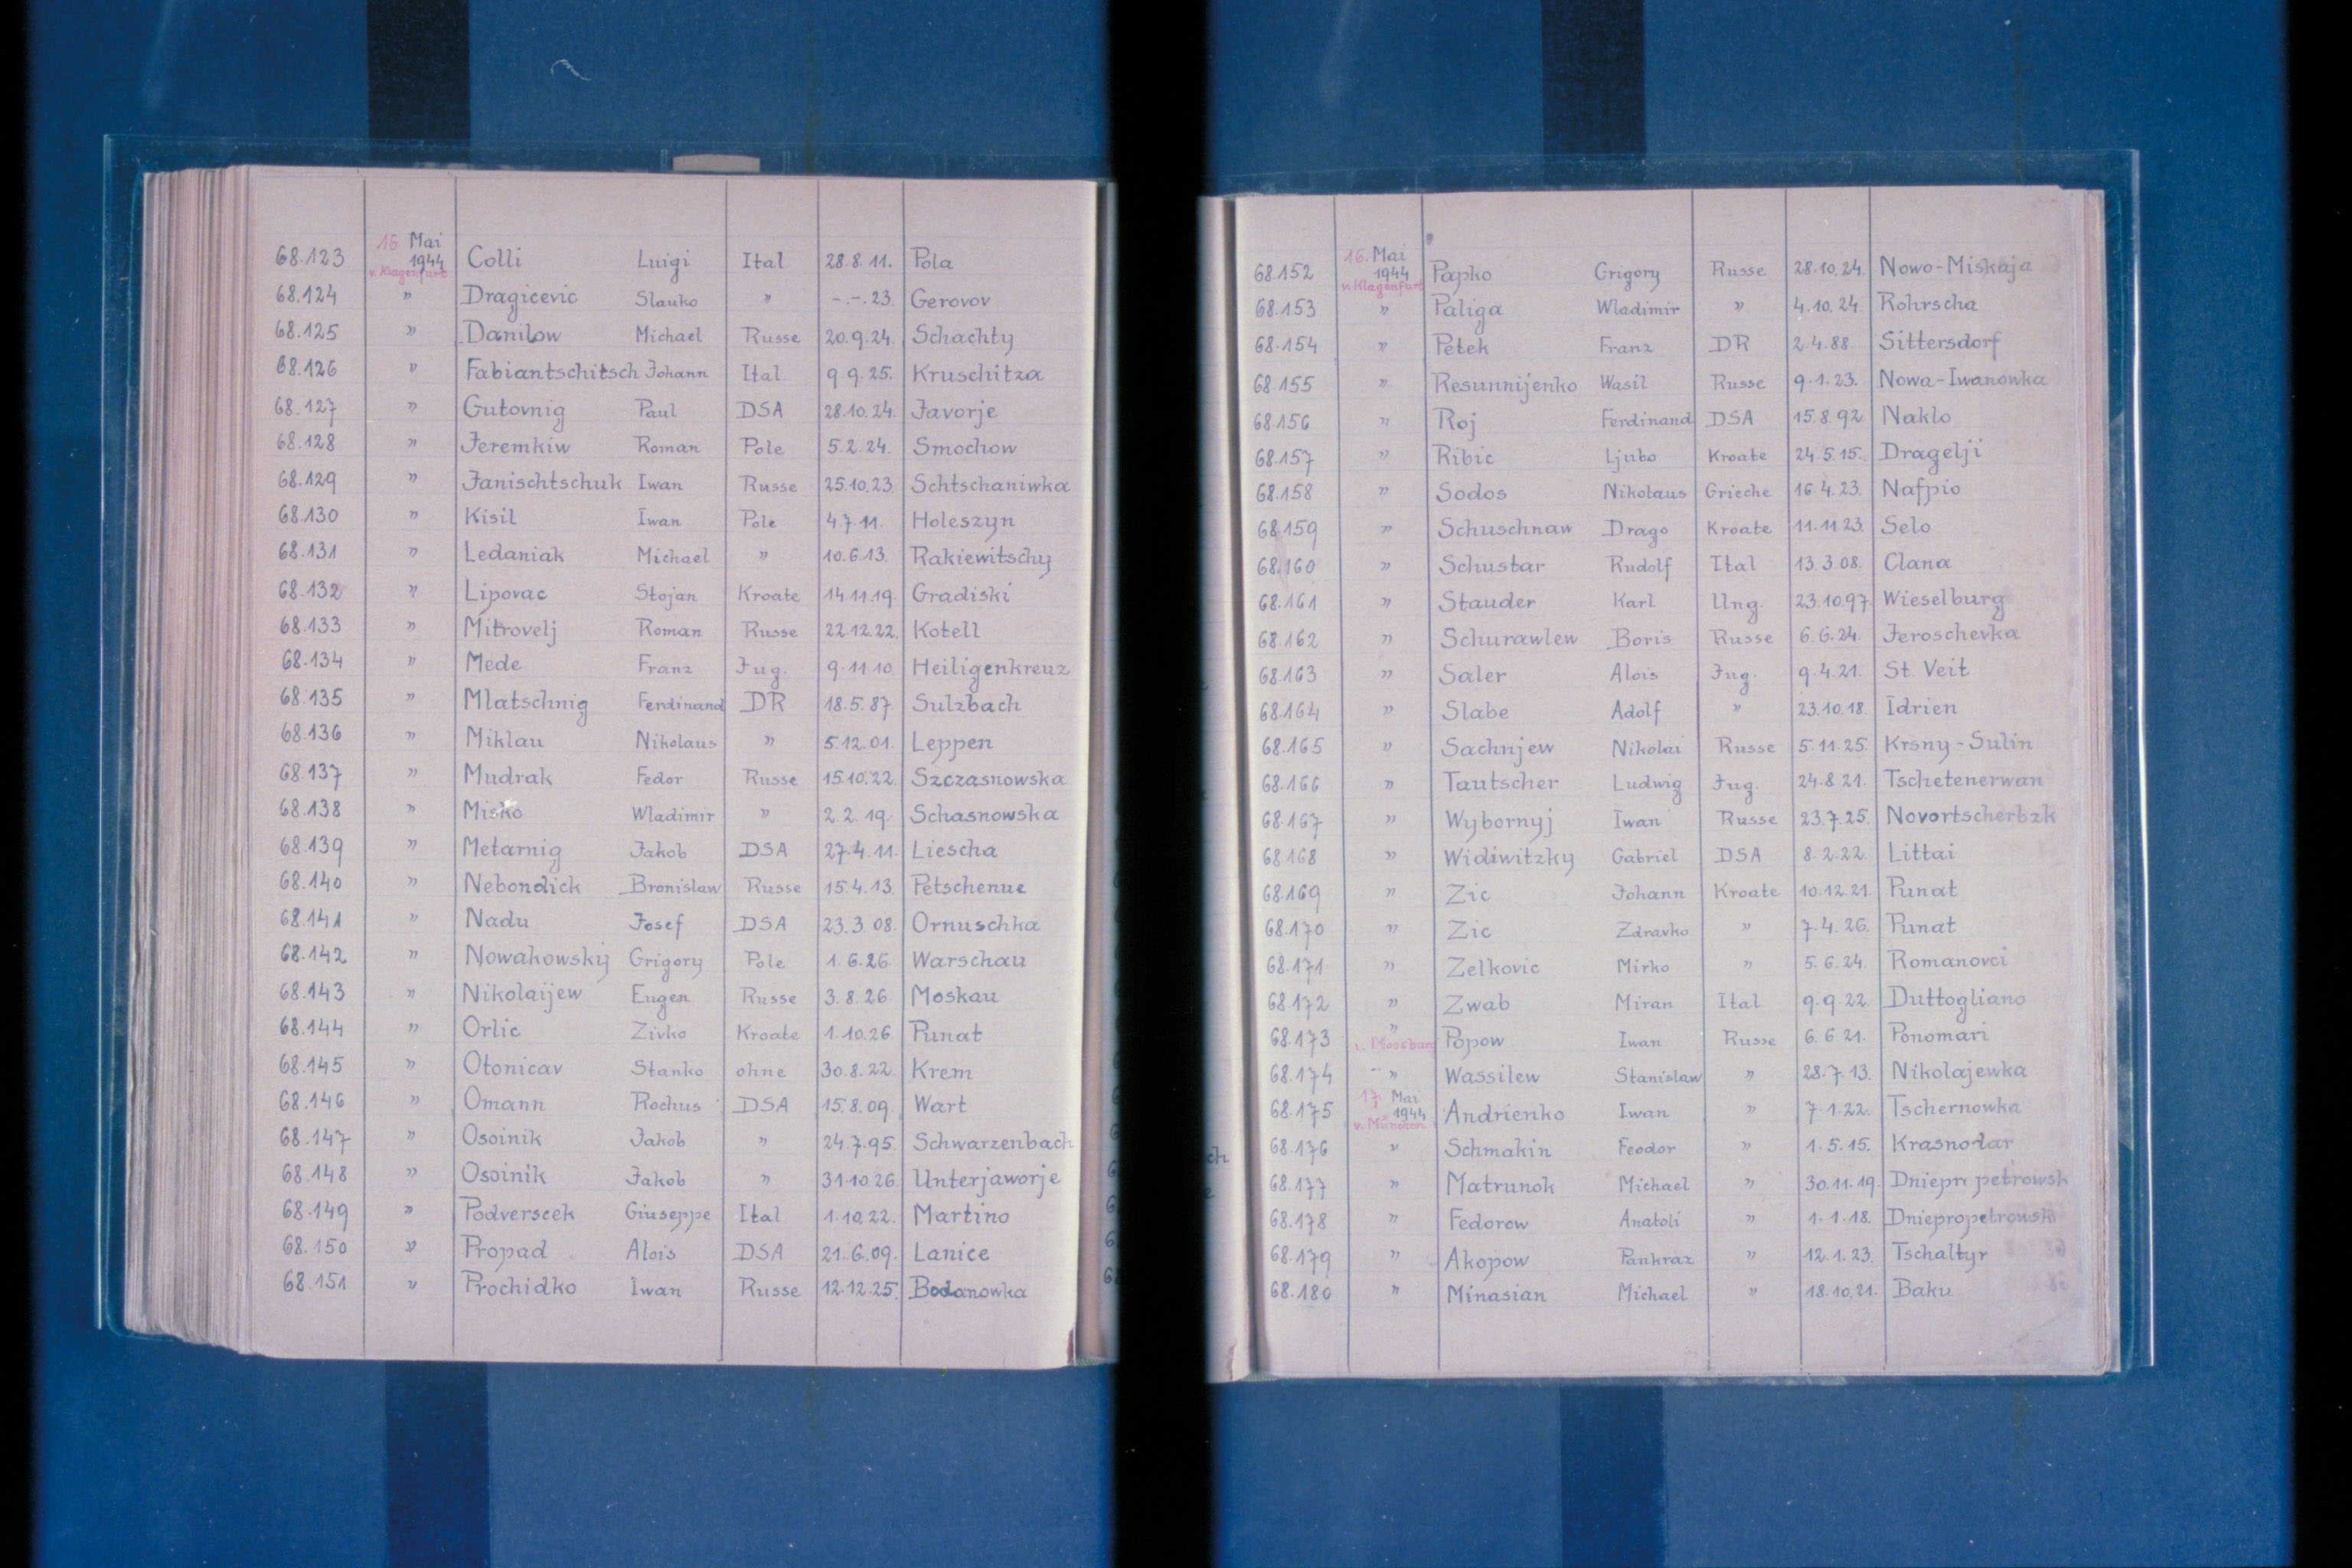 68.123 16. Mai 1944 v. Klagenfurt Colli Luigi Ital 28.8.11. Pola
68.124 " Dragicevic Slauko " -.-.23. Gerovov
68.125 " Danilow Michael Russe 20.9.24. Schachty
68.126 " Fabiantschitsch Johann Ital. 9.9.25. Kruschitza
68.127 " Gutovnig Paul DSA 28.10.24. Javorje
68.128 " Jeremkiw Roman Pole 5.2.24. Smochow
68.129 " Janischtschuk Iwan Russe 25.10.23 Schtschaniwka
68.130 " Kisil Iwan Pole 4.7.11. Holeszyn
68.131 " Ledaniak Michael " 10.6.13. Rakiewitschy
68.132 " Lipovac Stojan Kroate 14.11.19. Gradiski
68.133 " Mitrovelj Roman Russe 22.12.22. Kotell
68.134 " Mede Franz Jug. 9.11.10 Heiligenkreuz
68.135 " Mlatschnig Ferdinand DR 18.5.87. Sulzbach
68.136 " Miklau Nikolaus " 5.12.01. Leppen
68.137 " Mudrak Fedor Russe 15.10.22. Szczasnowska
68.138 " Misko Wladimir " 2.2.19. Schasnowska
68.139 " Metarnig Jakob DSA 27.4.11. Liescha
68.140 " Nebondick Bronislaw Russe 15.4.13. Petschenue
68.141 " Nadu Josef DSA 23.3.08. Ornuschka
68.142 " Nowakowskij Grigory Pole 1.6.26. Warschau
68.143 " Nikolaijew Eugen Russe 3.8.26. Moskau
68.144 " Orlic Zivko Kroate 1.10.26. Punat
68.145 " Otonicav Stanko ohne 30.8.22. Krem
68.146 " Omann Rochus DSA 15.8.09. Wart
68.147 " Osoinik Jakob " 24.7.95. Schwarzenbach
68.148 " Osoinik Jakob " 31.10.26. Unterjaworje
68.149 " Podverscek Giuseppe Ital 1.10.22. Martino
68.150 " Propad Alois DSA 21.6.09. Lanice
68.151 " Prochidko Iwan Russe 12.12.25. Bodanowka
68.152 16. Mai 1944 v. Klagenfurt Papko Grigory Russe 28.10.24. Nowo-Miskaja
68.153 " Paliga Wladimir " 4.10.24. Rohrscha
68.154 " Petek Franz DR 2.4.88. Sittersdorf
68.155 " Resunnijenko Wasil Russe 9.1.23. Nowa-Iwanowka
68.156 " Roj Ferdinand DSA 15.8.92. Naklo
68.157 " Ribic Ljubo Kroate 24.5.15. Dragelji
68.158 " Sodos Nikolaus Grieche 16.4.23. Nafpio
68.159 " Schuschnaw Drago Kroate 11.11.23. Selo
68.160 " Schustar Rudolf Ital 13.3.08. Clana
68.161 " Stauder Karl Ung. 23.10.97. Wieselburg
68.162 " Schurawlew Boris Russe 6.6.24. Jeroschevka
68.163 " Saler Alois Jug. 9.4.21. St. Veit
68.164 " Slabe Adolf " 23.10.18. Idrien
68.165 " Sachnjew Nikolai Russe 5.11.25. Krsny-Sulin
68.166 " Tautscher Ludwig Jug. 24.8.21. Tschetenerwan
68.167 " Wybornyj Iwan Russe 23.7.25. Novortscherbzk
68.168 " Widiwitzky Gabriel DSA 8.2.22. Littai
68.169 " Zic Johann Kroate 10.12.21. Punat
68.170 " Zic Zdravko " 7.4.26. Punat
68.171 " Zelkovic Mirko " 5.6.24. Romanovci
68.172 " Zwab Miran Ital 9.9.22. Duttogliano
68.173 " v. Moosburg Popow Iwan Russe 6.6.21. Ponomari
68.174 " Wassilew Stanislaw " 28.7.13. Nikolajewka
68.175 17. Mai 1944 v. München Andrienko Iwan " 7.1.22. Tschernowka
68.176 " Schmakin Feodor " 1.5.15. Krasnodar
68.177 " Matrunok Michael " 30.11.19. Dniepropetrowsk
68.178 " Fedorow Anatoli " 1.1.18. Dniepropetrowsk
68.179 " Akopow Pankraz " 12.1.23. Tschaltyr
68.180 " Minasian Michael " 18.10.21. Baku